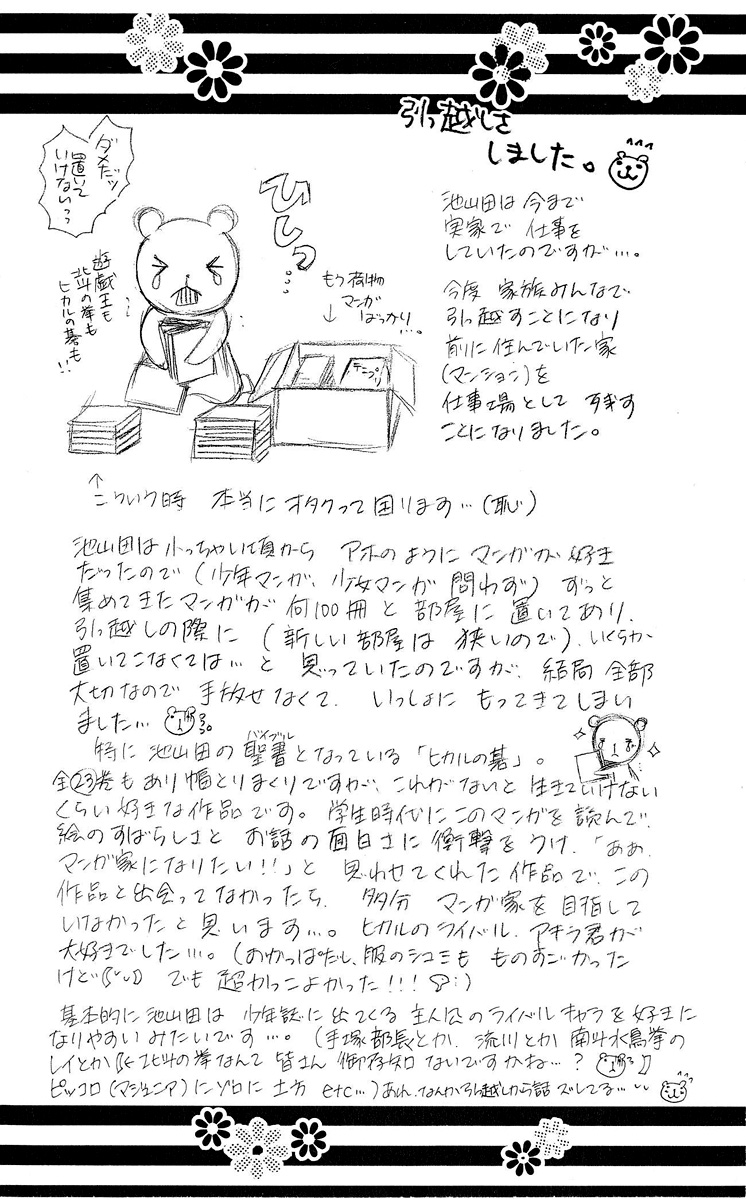 引っ越しさ
しました。
池山田は今まで
実家で 仕事を
していたのですが…。
今度 家族みんなで
引っ越すことになり
前に住んでいた家
(マンション)を
仕事場として 残す
ことになりました。
ダメだッ
置いて
いけないっっ
ひしっ…
遊戯王も
北斗の拳も
ヒカルの碁も!!
もう荷物
マンガ
ばっかり
…。
↓
テニプリ
↑
こういう時 本当にオタクって困ります…(恥)
池山田は小っちゃい頃から アホのように マンガが好き
だったので(少年マンガ、少女マンガ 問わず) ずっと
集めてきたマンガが 何100冊と 部屋に 置いてあり、
引っ越しの際に (新しい部屋は 狭いので)、いくらか
置いてこなくては… と 思っていたのですが、結局 全部
大切なので 手放せなくて、 いっしょに もってきてしまい
ました…
特に 池山田の聖書となっている「ヒカルの碁」。
バイブル
全23巻もあり幅とりまくりですが、これがないと 生きていけない
くらい好きな作品です。 学生時代にこのマンガを読んで、
絵のすばらしさと お話の面白さに衝撃をうけ、「ああ、
マンガ家になりたい!!」と 思わせてくれた作品で、この
作品と出会ってなかったら、 多分 マンガ家を目指して
いなかったと思います…。 ヒカルのライバル、アキラ君が
大好きでした…。(おかっぱだし、服のシュミも ものすごかった
けど) でも 超かっこよかった!!!
基本的に池山田は 少年誌に出てくる 主人公のライバルキャラを好きに
なりやすいみたいです…。(手塚部長とか、流川とか 南斗水鳥拳の
レイとか 北斗の拳なんて 皆さん 御存知ないですかね…?
ピッコロ(マジュニア)にゾロに土方 etc…)あれ、なんか引っ越しから話 ズレてる…